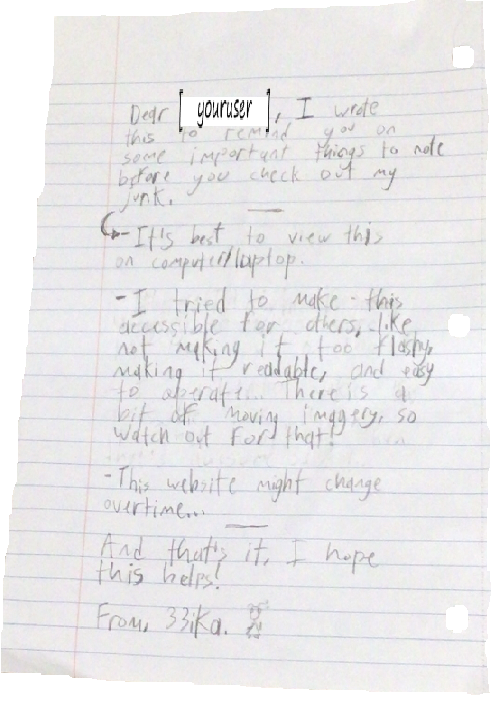 Dear [youruser], I wrote
this to remind you on
some important things to note
before you check out my
junk.
-It's best to view this
on computer/laptop.
-I tried to make this
accessible for others, like
not making it too flashy,
making it readable, and easy
to operate... There is a
bit of moving imagery, so
watch out for that!
-This website might change
overtime...
And that's it, I hope
this helps!
From, 33ika.